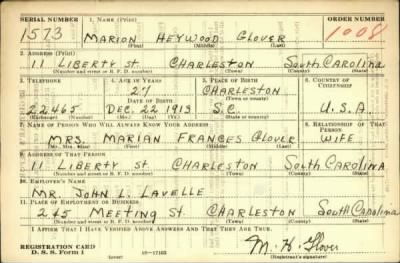 SERIAL NUMBER 1. NAME (Print) ORDER NUMBER
1573 MARION HEYWOOD GLOVER 1008
(First) (Middle) (Last)
2. ADDRESS (Print)
11 LIBERTY ST. CHARLESTON SOUTH CAROLINA
(Number and street or R. F. D. number) (Town) (County) (State)
3. TELEPHONE 4. AGE IN YEARS 5. PLACE OF BIRTH 6. COUNTRY OF CITIZENSHIP
27 CHARLESTON
DATE OF BIRTH (Town or county)
22465 DEC. 22 1913 S.C. U.S.A
(Exchange) (Number) (Mo.) (Day) (Yr.) (State or country)
7. NAME OF PERSON WHO WILL ALWAYS KNOW YOUR ADDRESS 8. RELATIONSHIP OF THAT PERSON
MRS. MARIAN FRANCES GLOVER WIFE
(Mr., Mrs., Miss) (First) (Middle) (Last)
9. ADDRESS OF THAT PERSON
11 LIBERTY ST. CHARLESTON SOUTH CAROLINA
(Number and street or R. F. D. number) (Town) (County) (State)
10. EMPLOYER'S NAME
MR. JOHN L. LAVELLE
11. PLACE OF EMPLOYMENT OR BUSINESS
245 MEETING ST. CHARLESTON SOUTH CAROLINA
(Number and street or R. F. D. number) (Town) (County) (State)
I AFFIRM THAT I HAVE VERIFIED ABOVE ANSWERS AND THAT THEY ARE TRUE.
REGISTRATION CARD
D. S. S. Form 1 (over) M. H. Glover
(Registrant's signature)